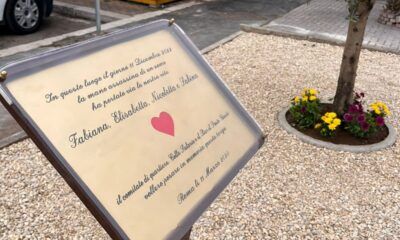 In questo luogo il giorno 11 Dicembre 2022
la mano assassina di un uomo
ha portato via le nostre vite
Fabiana, Elisabetta, Nicoletta e Sabina
il comitato di quartiere Colle Salario e il Bar di Porta
vollero posare in memoria questa targa
Roma lì 11 Marzo 2023